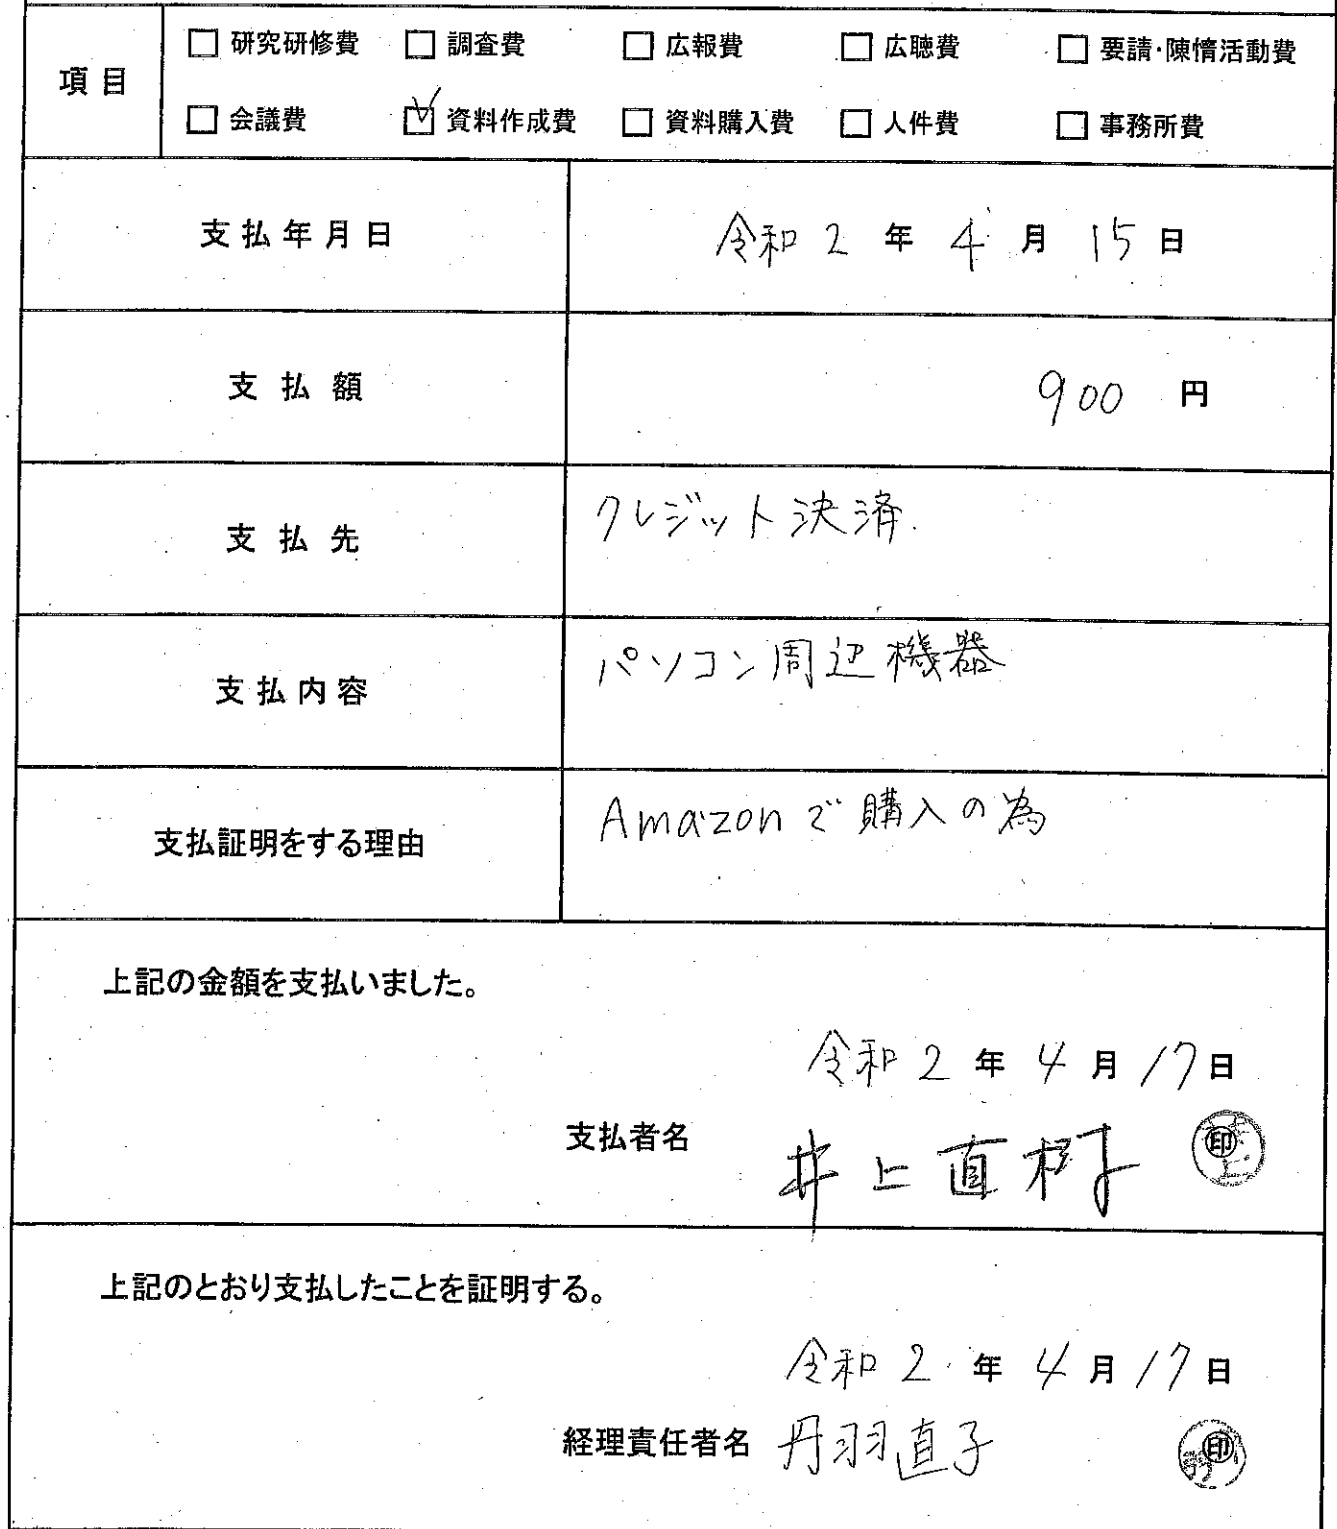 項目
□ 研究研修費 □ 調査費 □ 広報費 □ 広聴費 □ 要請・陳情活動費
□ 会議費 ☑ 資料作成費 □ 資料購入費 □ 人件費 □ 事務所費
支払年月日 令和 2 年 4 月 15 日
支払額 900 円
支払先 クレジット決済
支払内容 パソコン周辺機器
支払証明をする理由 Amazonで購入の為
上記の金額を支払いました。
令和 2 年 4 月 17 日
支払者名 井上直樹 印
上記のとおり支払したことを証明する。
令和 2 年 4 月 17 日
経理責任者名 丹羽直子 印